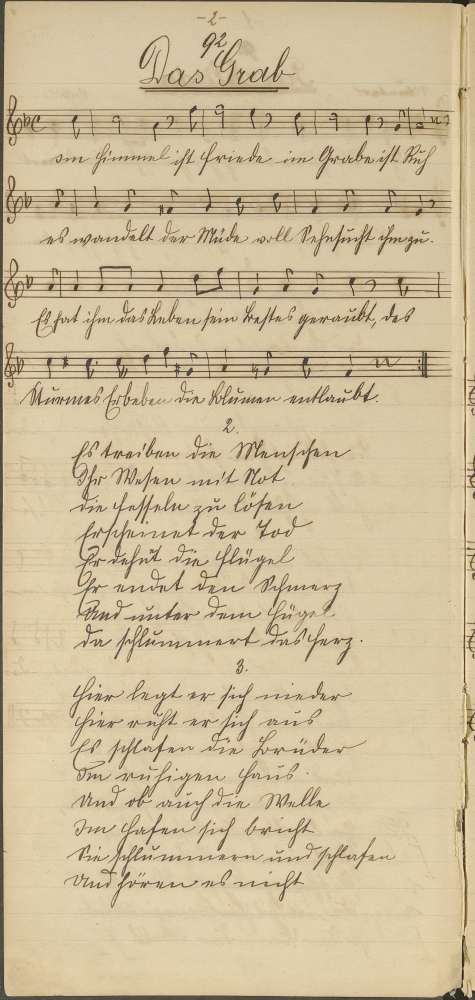 -2-
92
Das Grab
Im Himmel ist Friede im Grabe ist Ruh
es wandelt der Müde voll Sehnsucht ihm zu.
Es hat ihm das Leben sein Bestes geraubt, des
Sturmes Erbeben die Blumen entlaubt.
2.
Es treiben die Menschen
Ihr Wesen mit Not
die Fesseln zu lösen
Erscheinet der Tod
Er dehnt die Flügel
Er endet den Schmerz
Und unter dem Hügel
da schlummert das Herz.
3.
Hier legt er sich nieder
Hier ruht er sich aus
Es schlafen die Brüder
Im ruhigen Haus.
Und ob auch die Welle
Im Hafen sich bricht
Sie schlummern und schlafen
Und hören es nicht